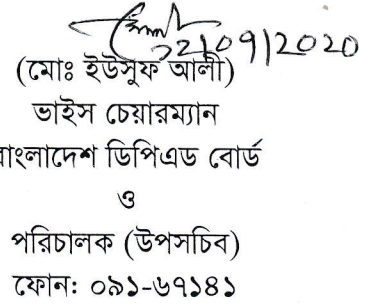 22/09/2020
(মোঃ ইউসুফ আলী)
ভাইস চেয়ারম্যান
বাংলাদেশ ডিপিএড বোর্ড
ও
পরিচালক (উপসচিব)
ফোন: ০৯১-৬৭১৪১